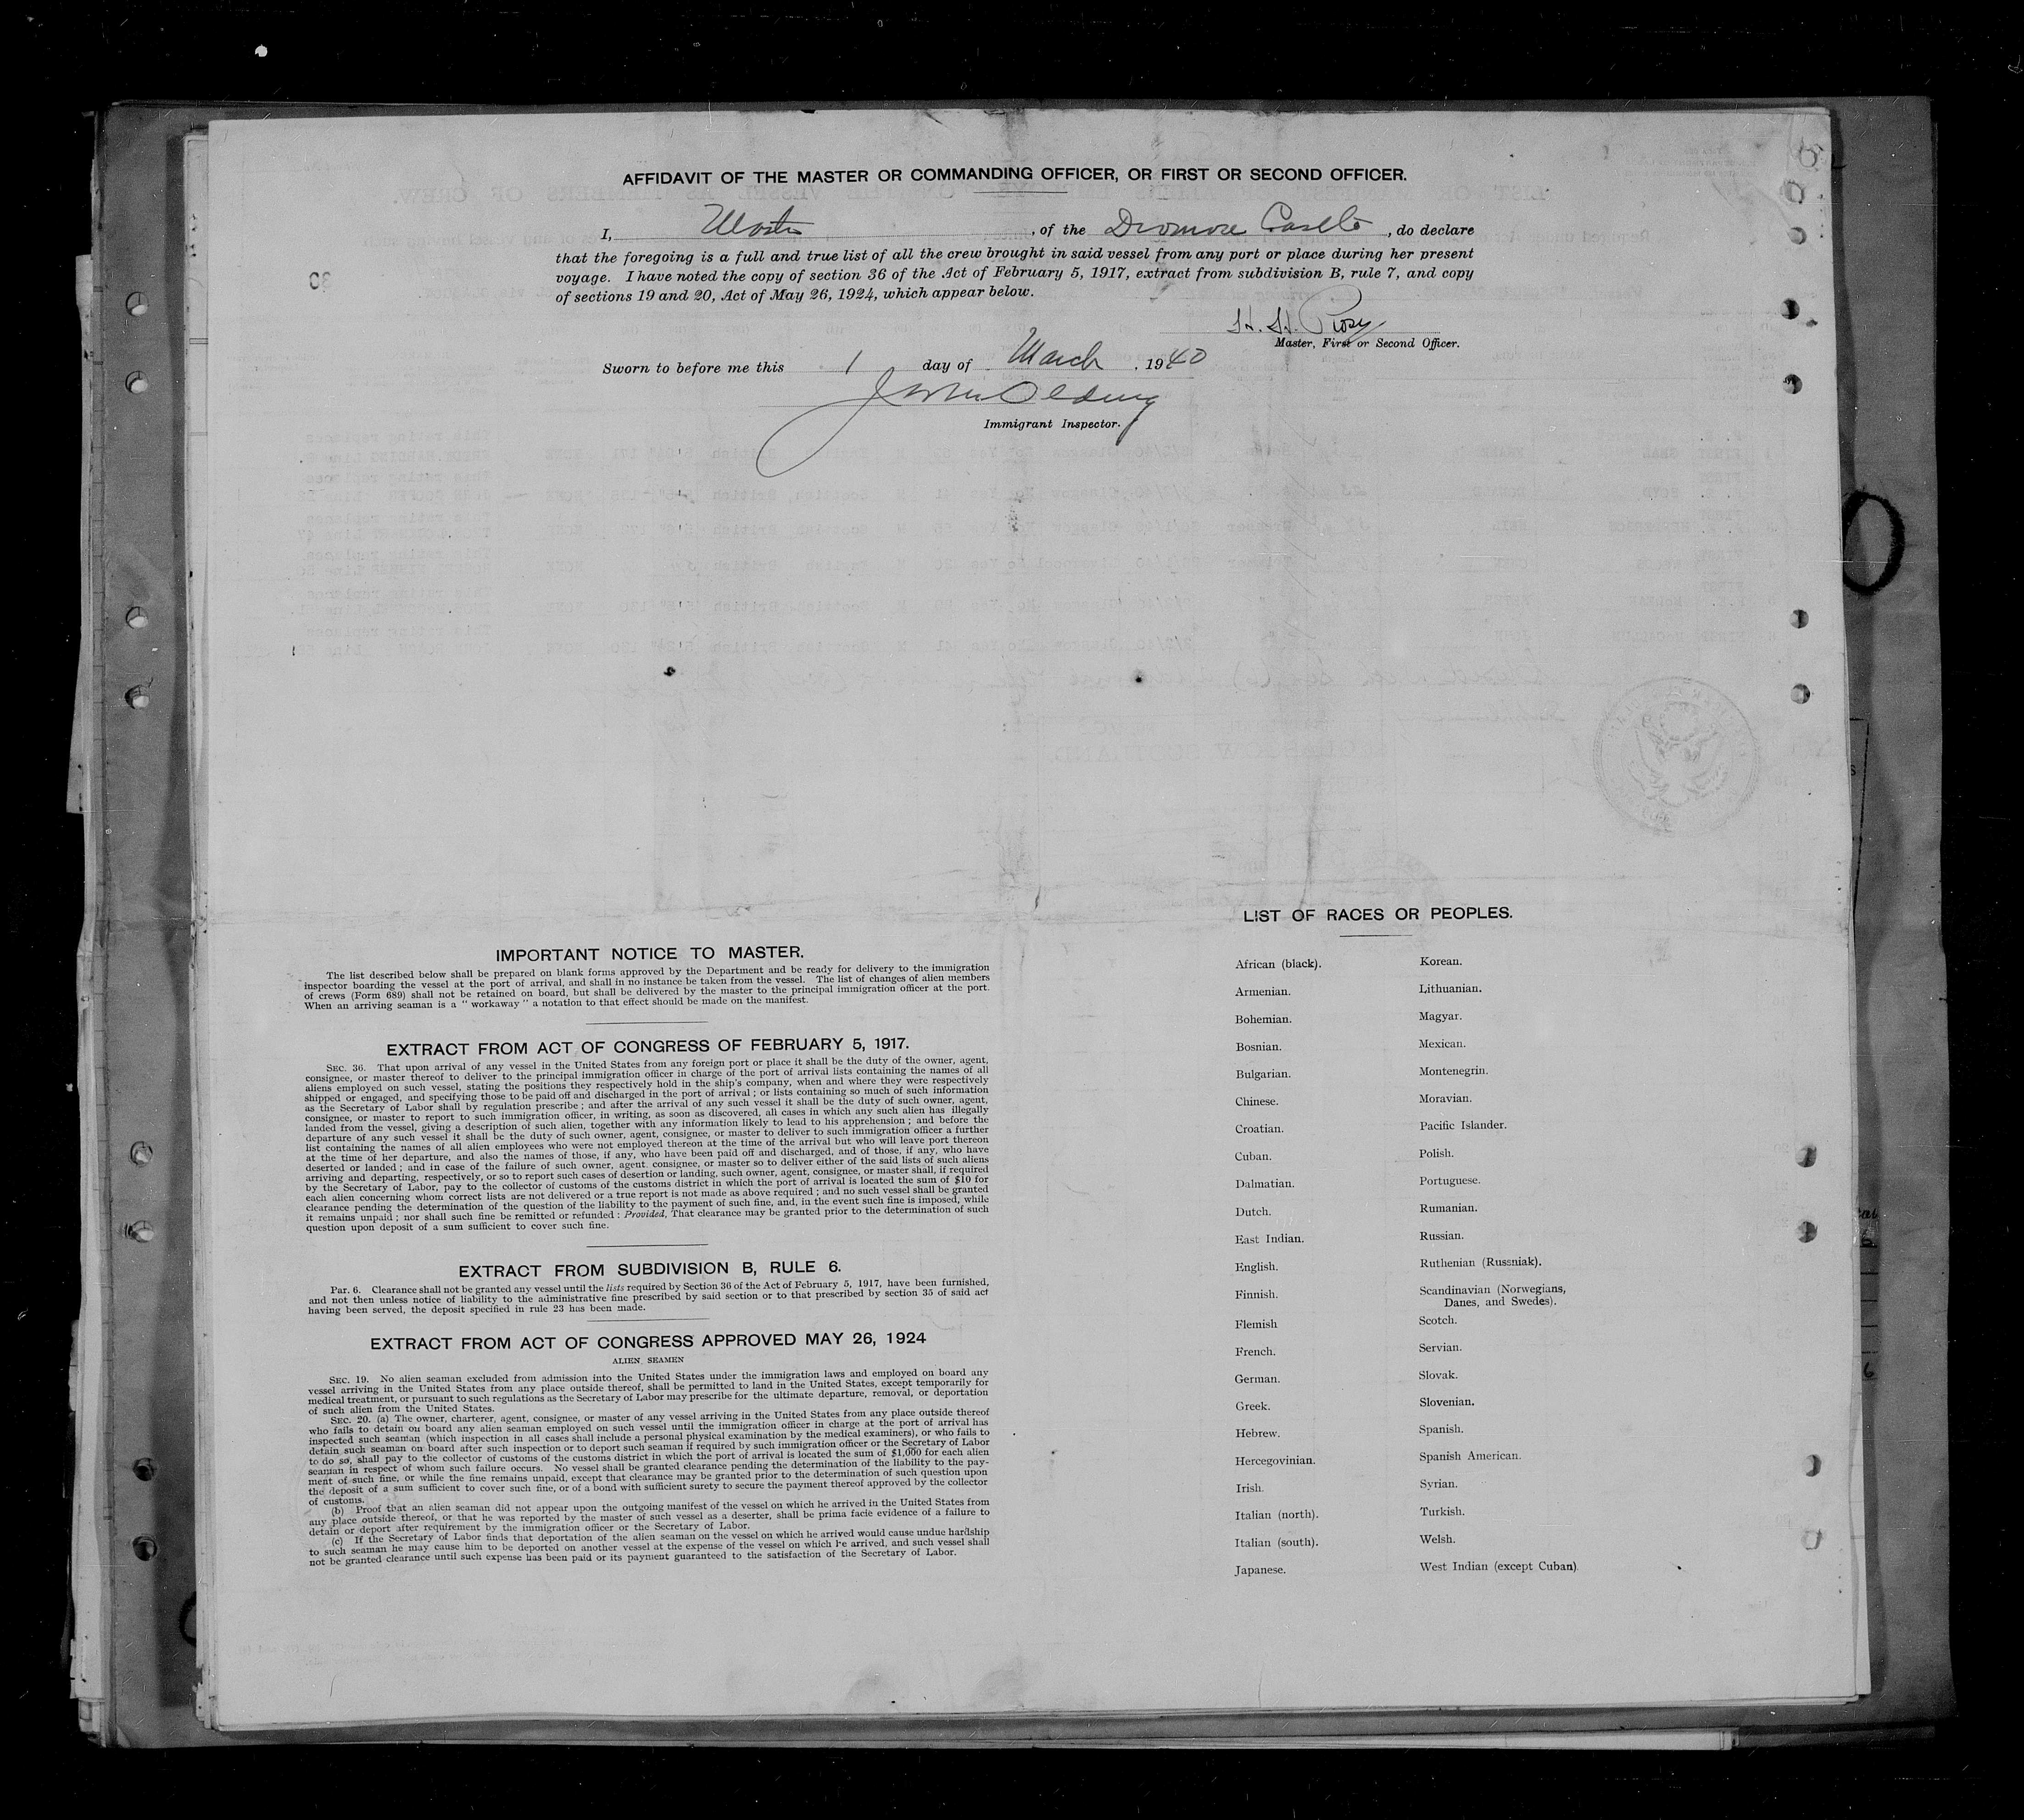 AFFIDAVIT OF THE MASTER OR COMMANDING OFFICER, OR FIRST OR SECOND OFFICER.
I, Master, of the Dromore Castle, do declare
that the foregoing is a full and true list of all the crew brought in said vessel from any port or place during her present
voyage. I have noted the copy of section 36 of the Act of February 5, 1917, extract from subdivision B, rule 7, and copy
of sections 19 and 20, Act of May 26, 1924, which appear below.
H. H.
Master, First or Second Officer.
Sworn to before me this 1 day of March, 1940
Immigrant Inspector.
IMPORTANT NOTICE TO MASTER.
The list described below shall be prepared on blank forms approved by the Department and be ready for delivery to the immigration
inspector boarding the vessel at the port of arrival, and shall in no instance be taken from the vessel. The list of changes of alien members
of crews (Form 689) shall not be retained on board, but shall be delivered by the master to the principal immigration officer at the port.
When an arriving seaman is a " workaway " a notation to that effect should be made on the manifest.
EXTRACT FROM ACT OF CONGRESS OF FEBRUARY 5, 1917.
SEC. 36. That upon arrival of any vessel in the United States from any foreign port or place it shall be the duty of the owner, agent,
consignee, or master thereof to deliver to the principal immigration officer in charge of the port of arrival lists containing the names of all
aliens employed on such vessel, stating the positions they respectively hold in the ship's company, when and where they were respectively
shipped or engaged, and specifying those to be paid off and discharged in the port of arrival ; or lists containing so much of such information
as the Secretary of Labor shall by regulation prescribe ; and after the arrival of any such vessel it shall be the duty of such owner, agent,
consignee, or master to report to such immigration officer, in writing, as soon as discovered, all cases in which any such alien has illegally
landed from the vessel, giving a description of such alien, together with any information likely to lead to his apprehension ; and before the
departure of any such vessel it shall be the duty of such owner, agent, consignee, or master to deliver to such immigration officer a further
list containing the names of all alien employees who were not employed thereon at the time of the arrival but who will leave port thereon
at the time of her departure, and also the names of those, if any, who have been paid off and discharged, and of those, if any, who have
deserted or landed ; and in case of the failure of such owner, agent. consignee, or master so to deliver either of the said lists of such aliens
arriving and departing, respectively, or so to report such cases of desertion or landing, such owner, agent, consignee, or master shall, if required
by the Secretary of Labor, pay to the collector of customs of the customs district in which the port of arrival is located the sum of $10 for
each alien concerning whom correct lists are not delivered or a true report is not made as above required ; and no such vessel shall be granted
clearance pending the determination of the question of the liability to the payment of such fine, and, in the event such fine is imposed, while
it remains unpaid ; nor shall such fine be remitted or refunded : Provided, That clearance may be granted prior to the determination of such
question upon deposit of a sum sufficient to cover such fine.
EXTRACT FROM SUBDIVISION B, RULE 6.
Par. 6. Clearance shall not be granted any vessel until the lists required by Section 36 of the Act of February 5, 1917, have been furnished,
and not then unless notice of liability to the administrative fine prescribed by said section or to that prescribed by section 35 of said act
having been served, the deposit specified in rule 23 has been made.
EXTRACT FROM ACT OF CONGRESS APPROVED MAY 26, 1924
ALIEN SEAMEN
SEC. 19. No alien seaman excluded from admission into the United States under the immigration laws and employed on board any
vessel arriving in the United States from any place outside thereof, shall be permitted to land in the United States, except temporarily for
medical treatment, or pursuant to such regulations as the Secretary of Labor may prescribe for the ultimate departure, removal, or deportation
of such alien from the United States.
SEC. 20. (a) The owner, charterer, agent, consignee, or master of any vessel arriving in the United States from any place outside thereof
who fails to detain on board any alien seaman employed on such vessel until the immigration officer in charge at the port of arrival has
inspected such seaman (which inspection in all cases shall include a personal physical examination by the medical examiners), or who fails to
detain such seaman on board after such inspection or to deport such seaman if required by such immigration officer or the Secretary of Labor
to do so, shall pay to the collector of customs of the customs district in which the port of arrival is located the sum of $1,000 for each alien
seaman in respect of whom such failure occurs. No vessel shall be granted clearance pending the determination of the liability to the pay-
ment of such fine, or while the fine remains unpaid, except that clearance may be granted prior to the determination of such question upon
the deposit of a sum sufficient to cover such fine, or of a bond with sufficient surety to secure the payment thereof approved by the collector
of customs.
(b) Proof that an alien seaman did not appear upon the outgoing manifest of the vessel on which he arrived in the United States from
any place outside thereof, or that he was reported by the master of such vessel as a deserter, shall be prima facie evidence of a failure to
detain or deport after requirement by the immigration officer or the Secretary of Labor.
(c) If the Secretary of Labor finds that deportation of the alien seaman on the vessel on which he arrived would cause undue hardship
to such seaman he may cause him to be deported on another vessel at the expense of the vessel on which he arrived, and such vessel shall
not be granted clearance until such expense has been paid or its payment guaranteed to the satisfaction of the Secretary of Labor.
LIST OF RACES OR PEOPLES.
African (black).
Armenian.
Bohemian.
Bosnian.
Bulgarian.
Chinese.
Croatian.
Cuban.
Dalmatian.
Dutch.
East Indian.
English.
Finnish.
Flemish
French.
German.
Greek.
Hebrew.
Hercegovinian.
Irish.
Italian (north).
Italian (south).
Japanese.
Korean.
Lithuanian.
Magyar.
Mexican.
Montenegrin.
Moravian.
Pacific Islander.
Polish.
Portuguese.
Rumanian.
Russian.
Ruthenian (Russniak).
Scandinavian (Norwegians,
Danes, and Swedes).
Scotch.
Servian.
Slovak.
Slovenian.
Spanish.
Spanish American.
Syrian.
Turkish.
Welsh.
West Indian (except Cuban)